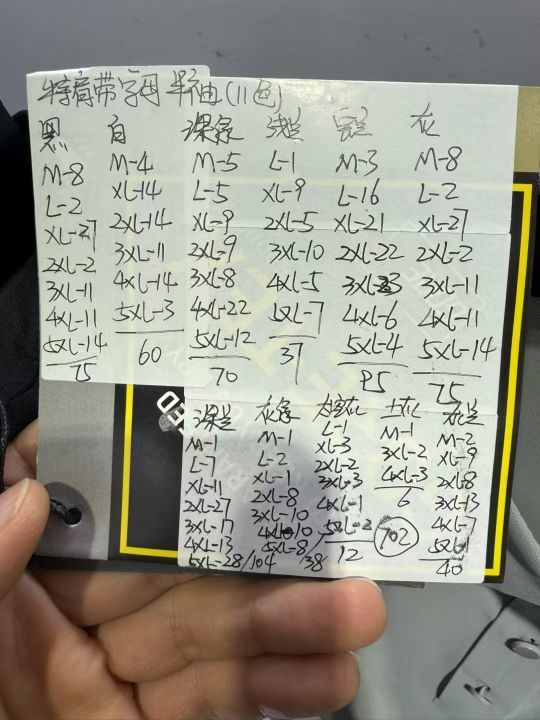 特肩带字母 半袖(11色)
黑
M-8
L-2
XL-27
2XL-2
3XL-11
4XL-11
5XL-14
75
白
M-4
XL-14
2XL-14
3XL-11
4XL-14
5XL-3
60
深绿
M-5
L-5
XL-9
2XL-9
3XL-8
4XL-22
5XL-12
70
浅兰
L-1
XL-9
2XL-5
3XL-10
4XL-5
5XL-7
37
宝兰
M-3
L-16
XL-21
2XL-22
3XL-23
4XL-6
5XL-4
95
灰
M-8
L-2
XL-27
2XL-2
3XL-11
4XL-11
5XL-14
75
深兰
M-1
L-7
XL-11
2XL-27
3XL-17
4XL-13
5XL-28/104
灰绿
M-1
L-2
XL-1
2XL-8
3XL-10
4XL-10
5XL-8/38
L-1
XL-3
2XL-2
3XL-3
4XL-1
5XL-2
12
M-1
3XL-2
4XL-3
6
702
灰兰
M-2
XL-9
2XL-8
3XL-13
4XL-7
5XL-1
40